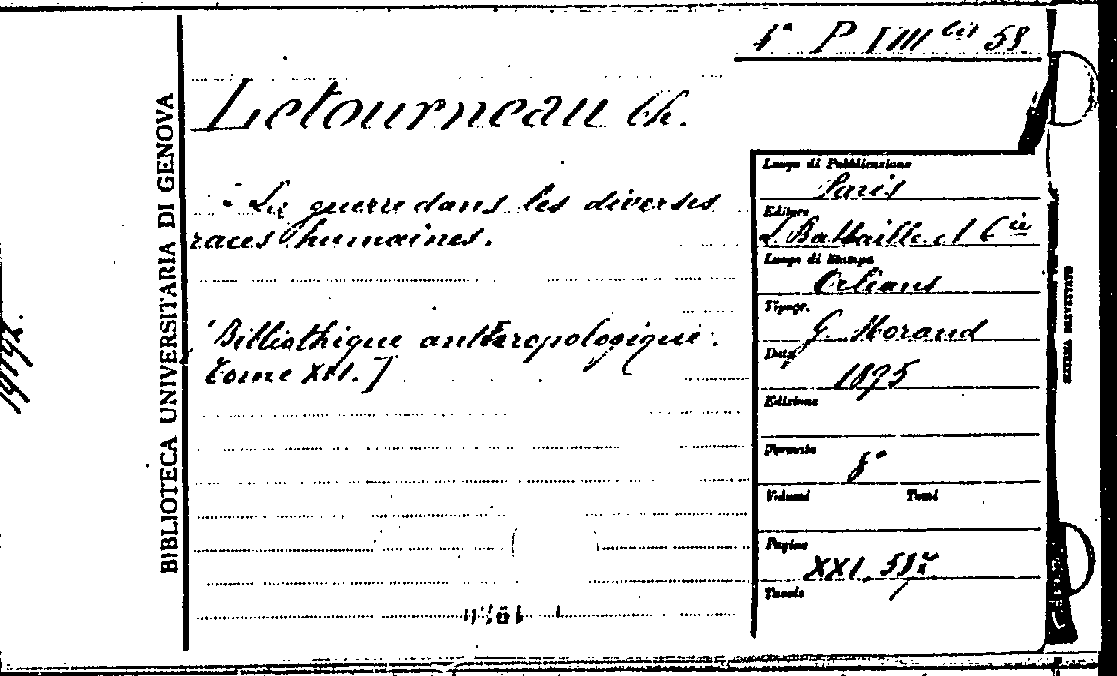 4ª P IIII bis 58
Letourneau Ch.
- La guerre dans les diverses
races humaines.
Bibliothique anthropologique.
tome XVI.]
BIBLIOTECA UNIVERSITARIA DI GENOVA
Luogo di Pubblicazione
Paris
Editore
L. Battaille et Cie
Luogo di Stampa
Orlians
Tipogr.
G. Morand
Data
1895
Edizione
Formato
8°
Volumi Tomi
Pagine
XXI, 587
Tavole
SISTEMA BREVETTATO